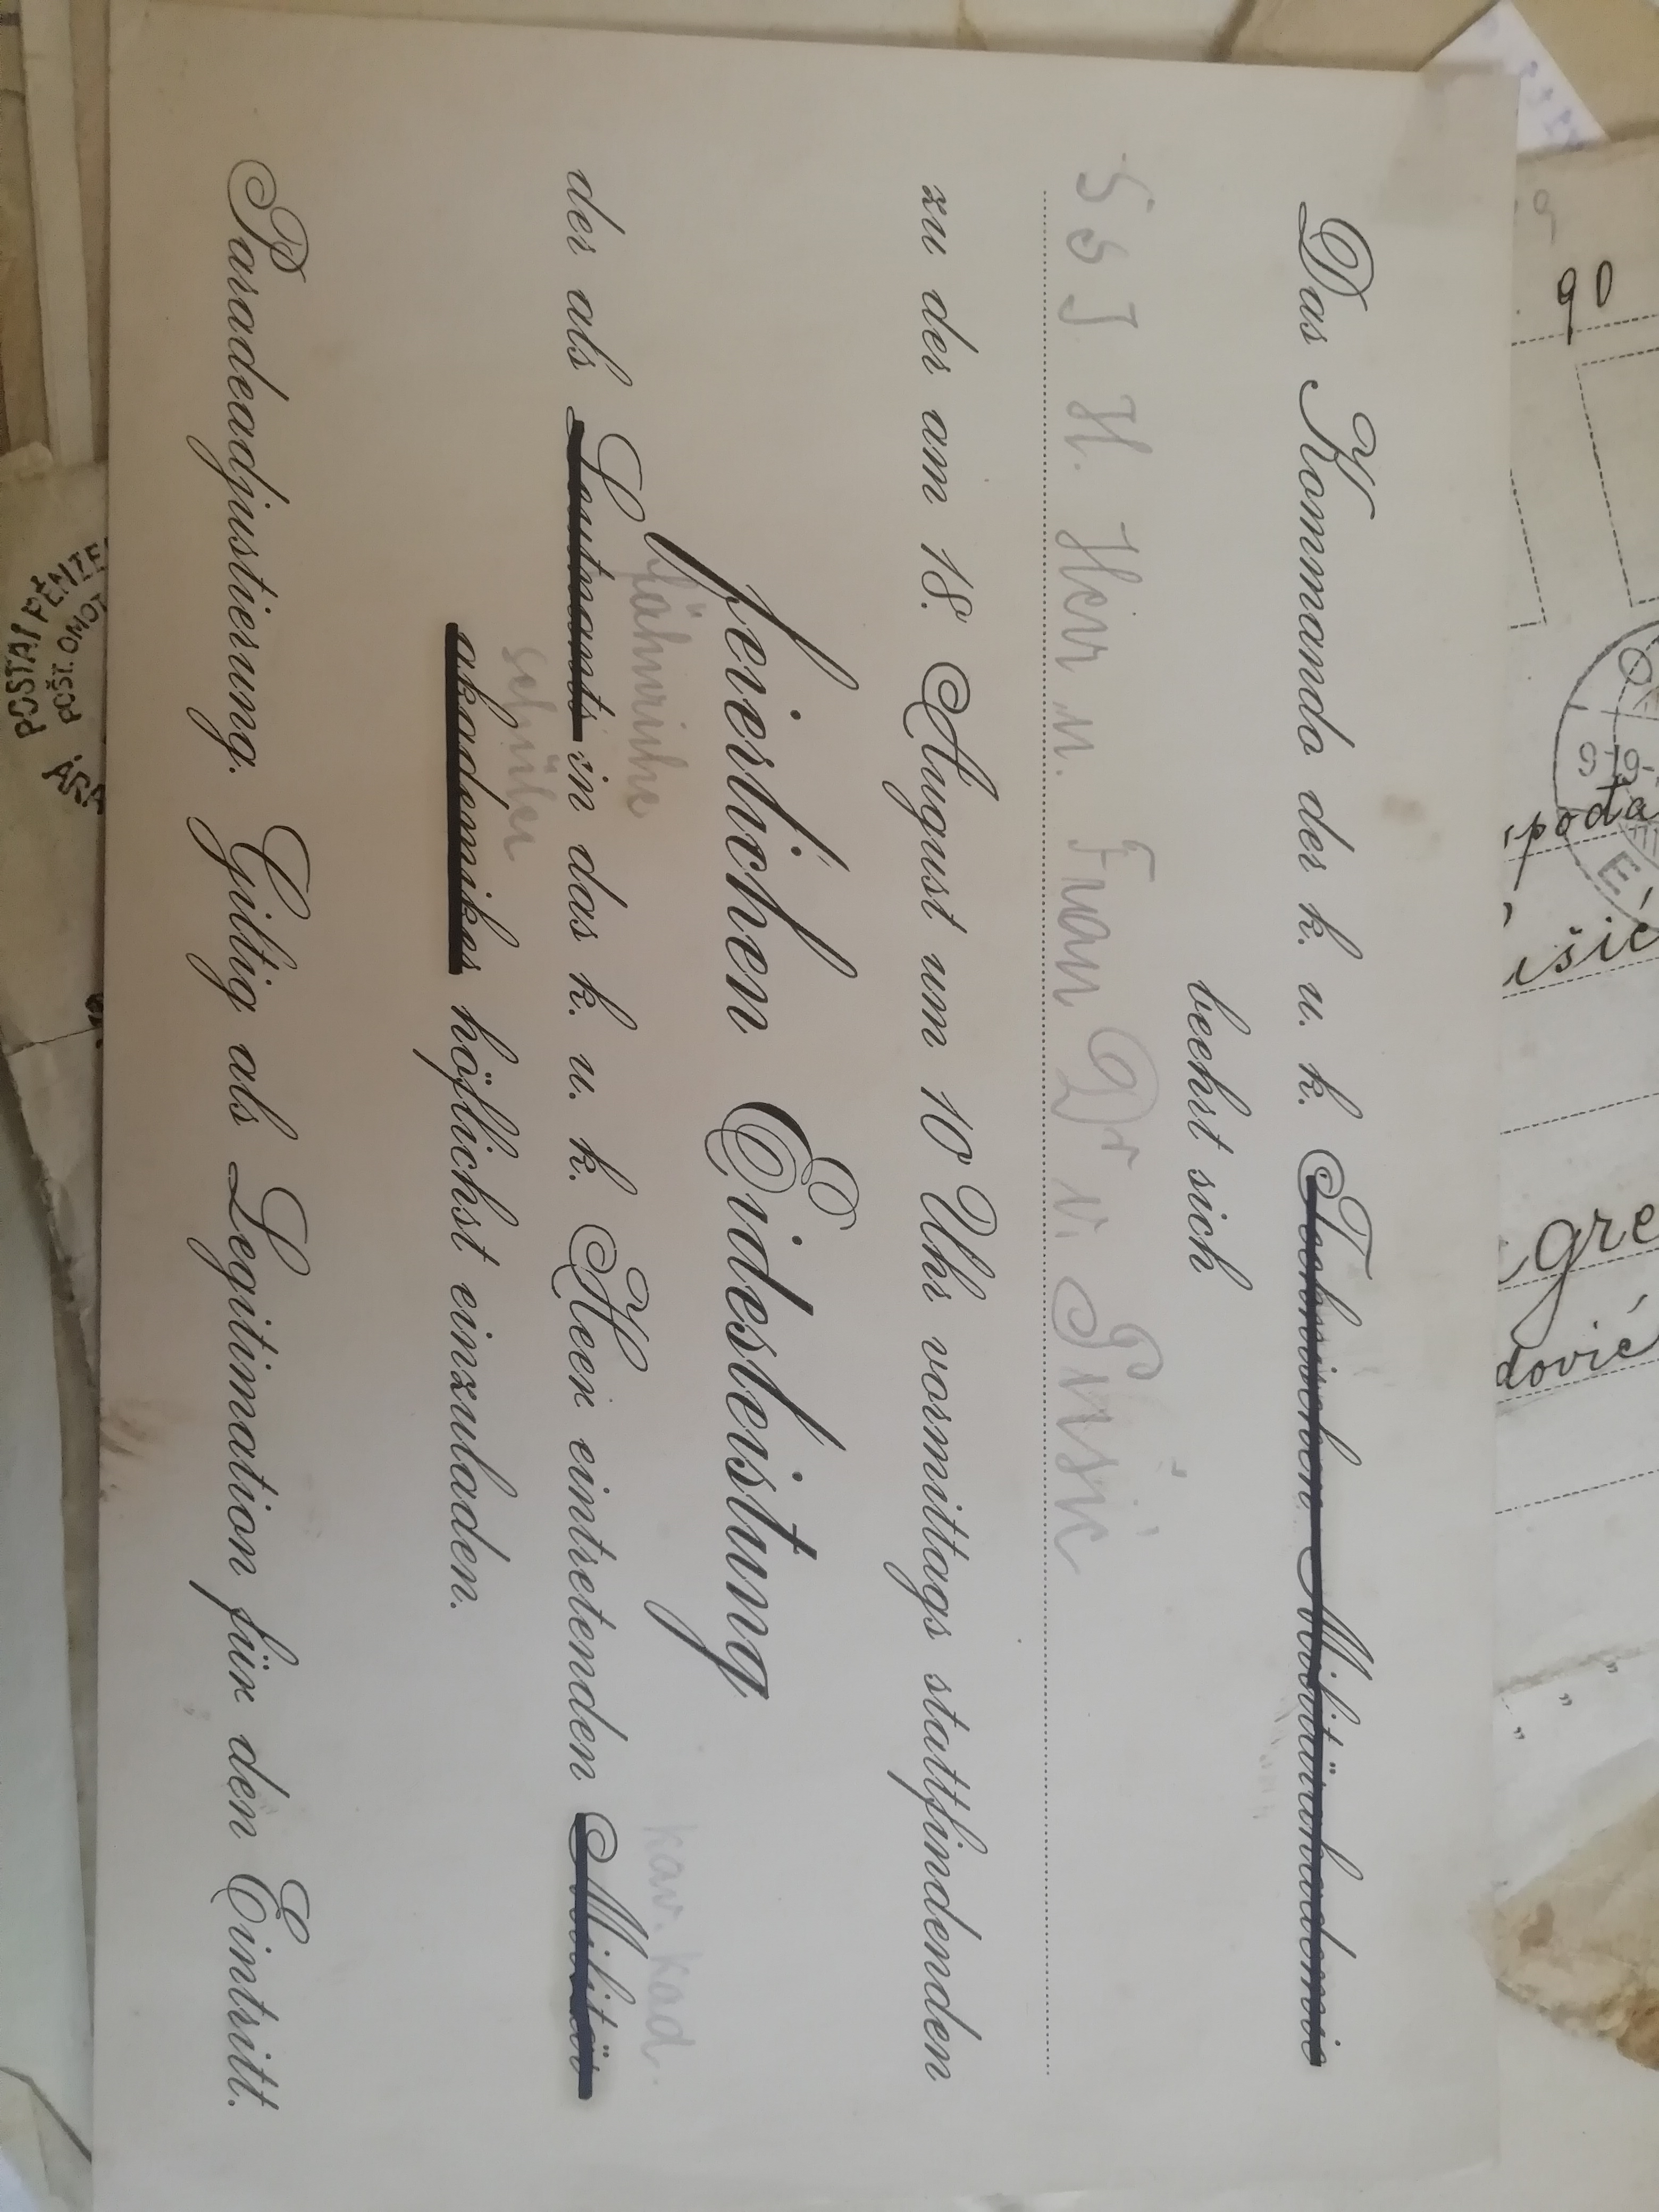 90
Das Kommando der k. u. k. Technischen Militärakademie
beehrt sich
S S J. H. Herr u. Frau Dr v. Pušić
zu der am 18. August um 10 Uhr vormittags stattfindenden
feierlichen Eidesleistung
fähnriche kav. kad.
der als Leutnants in das k. u. k. Heer eintretenden Militär
schüler
akademiker höflichst einzuladen.
Paradeadjustierung. Giltig als Legitimation für den Eintritt.